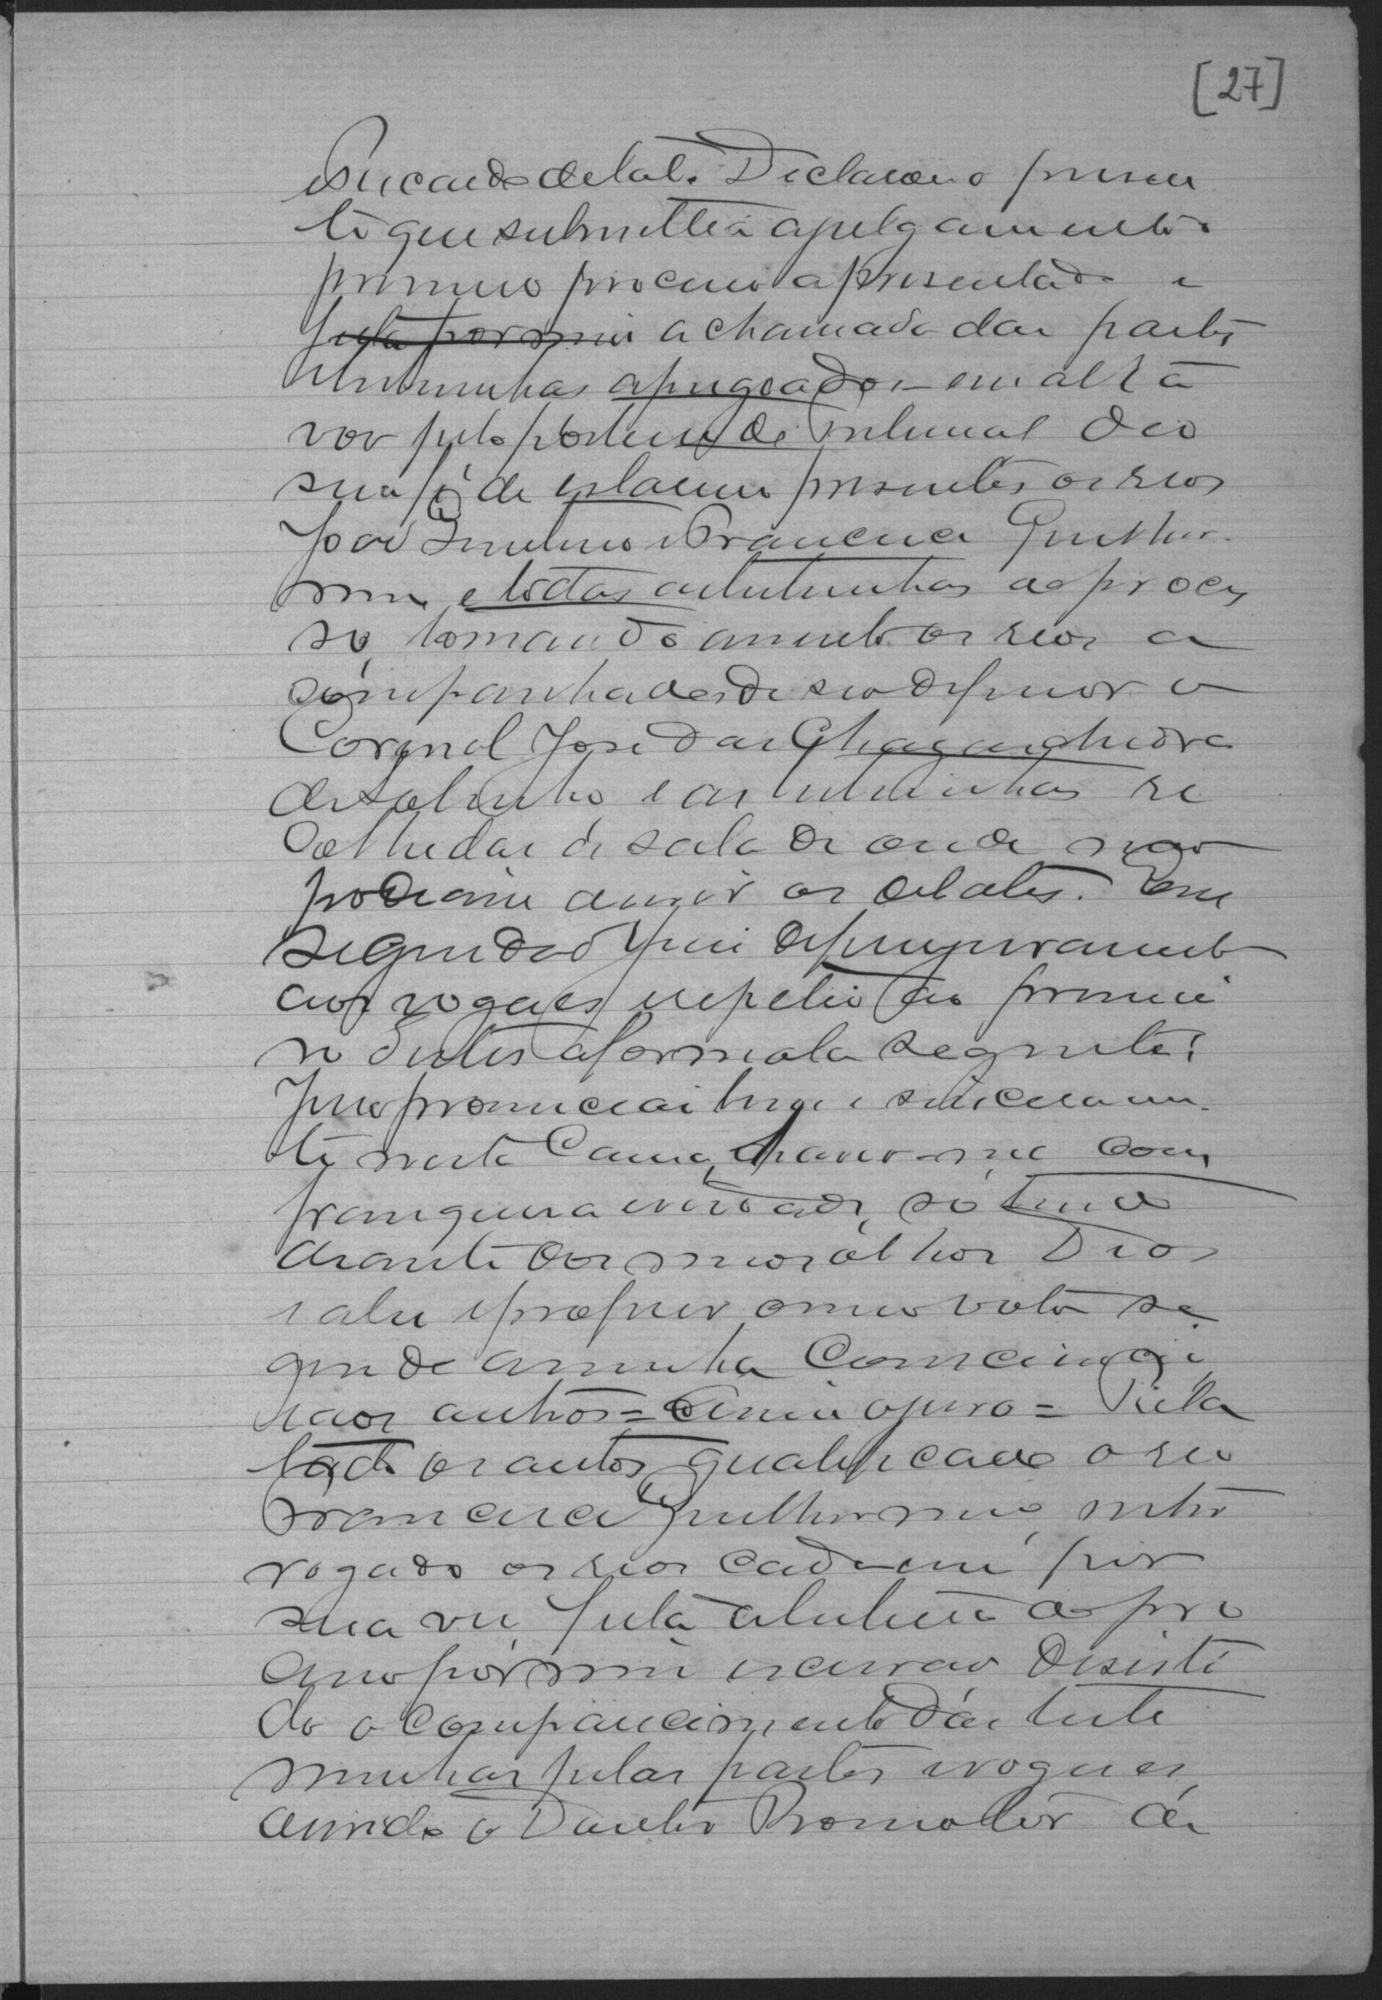 [27]
Ricardo de tal. Declarou o presen
te que submettia a julgamento o
primeiro processo apresentado e
feita por mim a chamada das partes
testemunhas apregoados em alta
voz pelo porteiro do tribunal deo
sua fé de estarem presentes os reos
José e Francisco Guilher-
me e todas as testemunhas do proces
so, tomando assento os reos a
companhados de seo defensor o
Coronel José das Chagas
e as testemunhas re
colhidas á sala de onde não
podiam ouvir os debates. Em
seguida aos vogaes repetio o primei
ro d'entre estes a formula seguinte:
Juro pronunciar bem e sinceramen-
te nesta Causa, haver-me com
franqueza e verdade, só tendo
diante dos meus olhos Deos
e a lei e proferir o meo voto se
gundo a minha Consciencia
nos autos = Assim o juro =
os autos, qualificado o reo
Francisco Guilherme, inter
rogado os reos cada um por
sua vez, feita a leitura do pro
cesso por mim escrivão desisti
do o comparecimento das teste
munhas pelas partes e vogaes,
ouvido o Doutor Promotor da